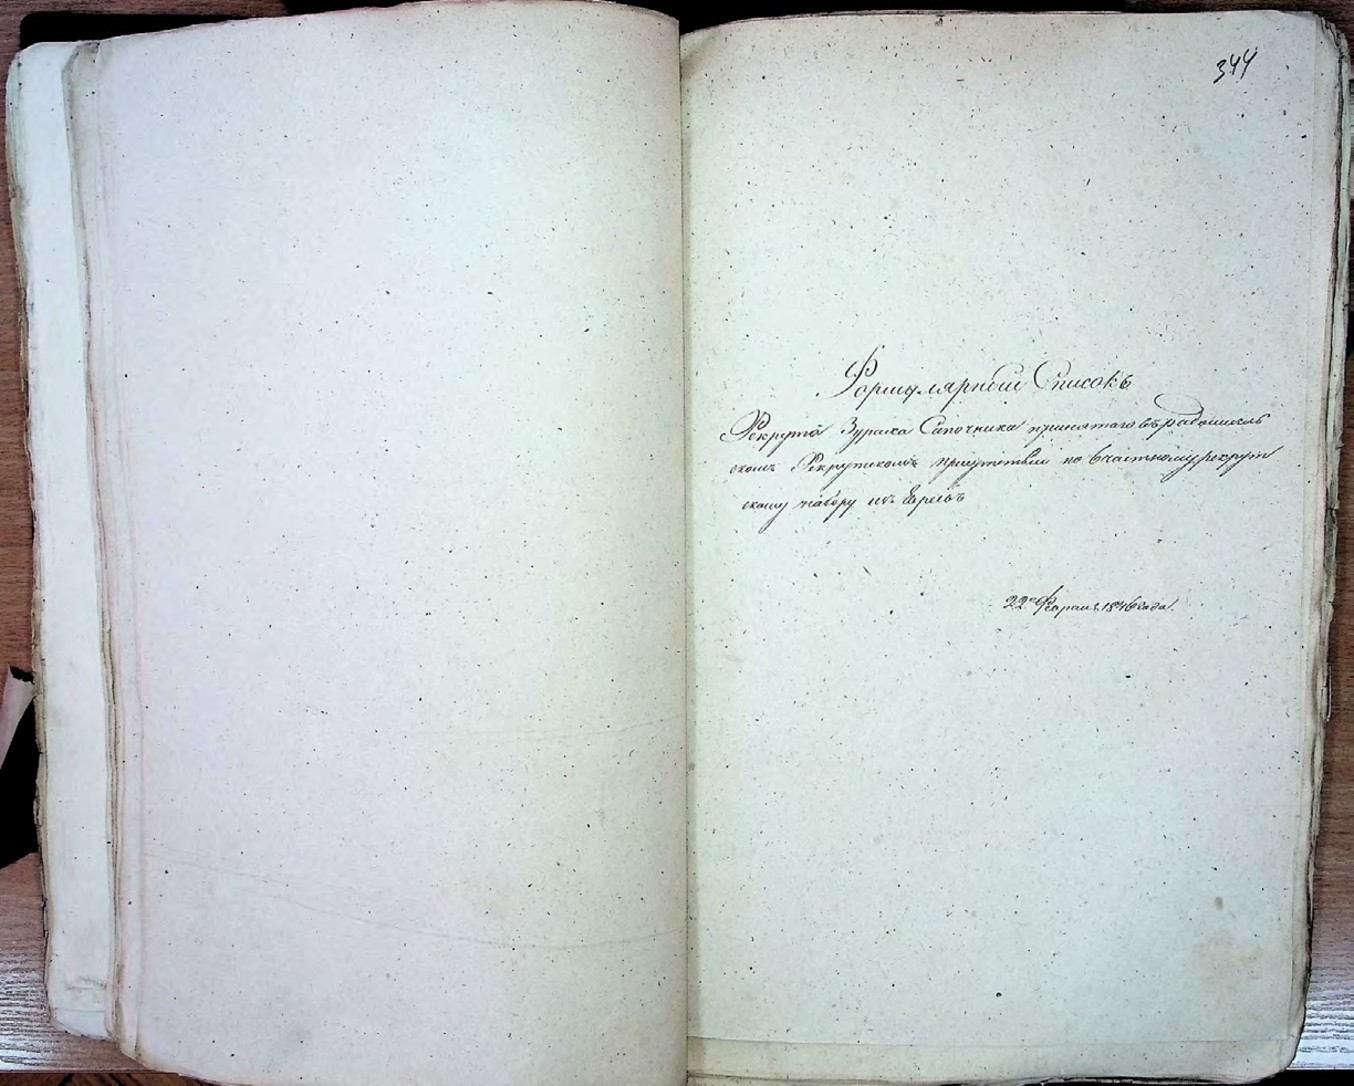 344
Формулярный Списокъ
Рекрута Зураха Сапочника принятаго въ радомысль
скомъ Рекрутскомъ присутствіи по 6 частному рекрут
скому набору изъ Евреевъ
22го Февраля 1846 года.